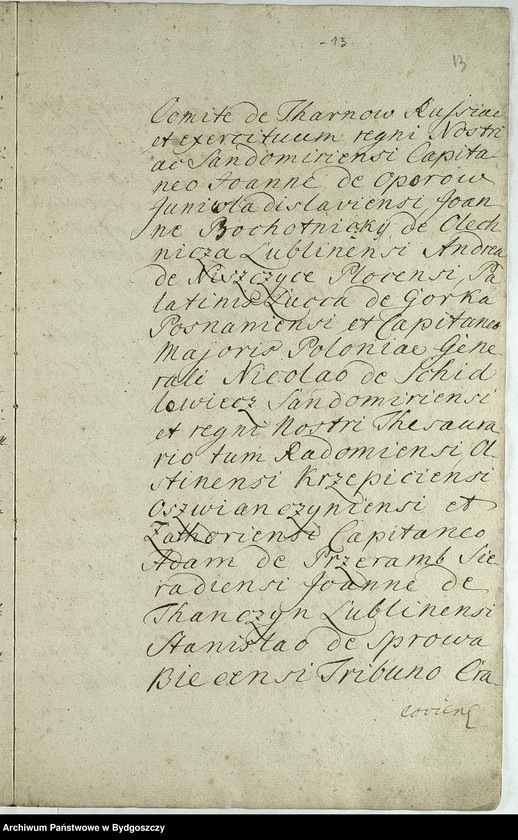 - 13.
13
Comite de Tharnow Russiae
et exercituum regni Nostri
ac Sandomiriensi Capita
neo Joanne de Oporow
Juniwladislaviensi Joan
ne Bochotnicky de Olech
nicza Lublinensi Andrea
de Niszczyce Plocensi Pa
latinis Lucca de Gorka
Posnaniensi et Capitaneo
Majoris Poloniae Gene
rali Nicolao de Schid
lowiecz Sandomiriensi
et regni Nostri Thesaura
rio tum Radomiensi O
stinensi Krzepiciensi
Oszwianczyniensi et
Zathoriensi Capitaneo
Adam de Przeramb Sie
radiensi Joanne de
Thanczyn Lublinensi
Stanislao de Sprowa
Biecensi Tribuno Cra-
coviens
Archiwum Państwowe w Bydgoszczy